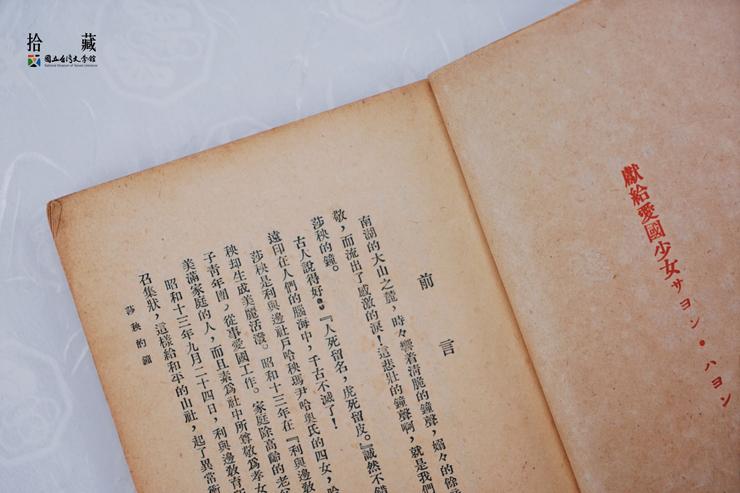 拾藏
國立台灣文學館
National Museum of Taiwan Literature
獻給愛國少女サヨン・ハヨン
前言
南湖的大山之麓，時々響着清脆的鐘聲，嫋々的餘
敬，而流出了感激的淚！這悲壯的鐘聲啊，就是我們
莎秧的鐘。
古人說得好。『人死留名，虎死留皮。』誠然不錯
遠印在人們的腦海中，千古不滅了！
莎秧是利與邊社戸哈秧瑪尹哈奥氏的四女，哈
秧却生成美麗活潑。昭和十三年在『利與邊
子青年團，從事愛國工作。家庭除高齡的老
美滿家庭的人，而且素爲社中所尊敬爲孝女
昭和十三年九月二十四日，利與邊教育所
召集狀，這樣給和平的山社，起了異常衝
莎秧的鐘